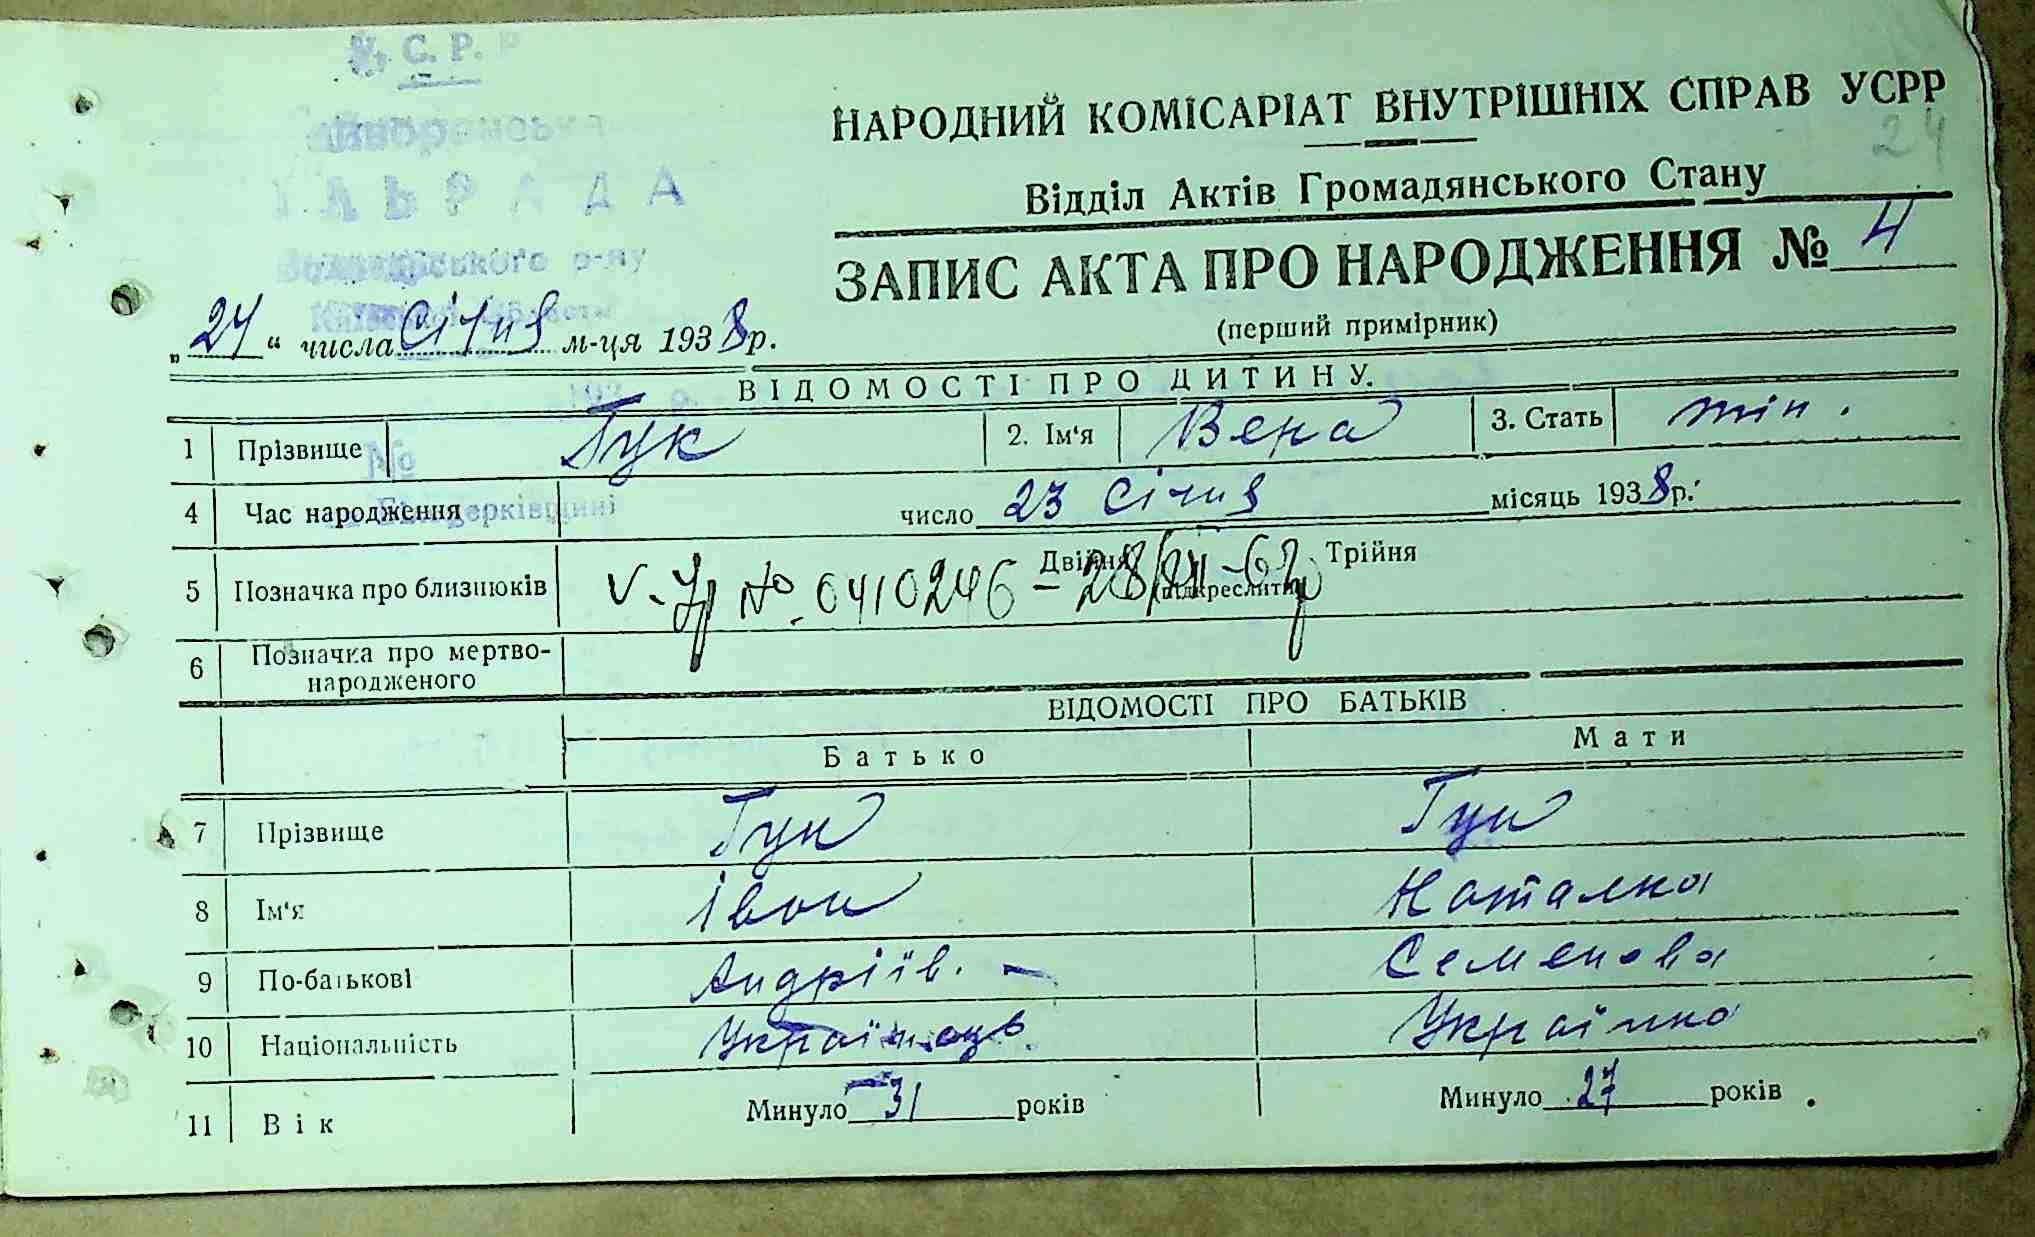 С. Р. Р
ІЛЬРАДА
р-ну
НАРОДНИЙ КОМІСАРІАТ ВНУТРІШНІХ СПРАВ УСРР
24
Відділ Актів Громадянського Стану
ЗАПИС АКТА ПРО НАРОДЖЕННЯ № 4
(перший примірник)
„24“ числа Січня м-ця 1938 р.
ВІДОМОСТІ ПРО ДИТИНУ.
1 Прізвище Гук 2. Ім'я Вера 3. Стать жін.
№
4 Час народження число 23 Січня місяць 1938 р.
5 Позначка про близнюків Двійня Трійня
(підкреслити)
№ 0410246 – 28
6 Позначка про мертво-
народженого
ВІДОМОСТІ ПРО БАТЬКІВ
Батько Мати
7 Прізвище Гук Гук
8 Ім'я Іван Наталка
9 По-батькові Андріїв. – Семенова
10 Національність Українець Українка
11 Вік Минуло 31 років Минуло 27 років